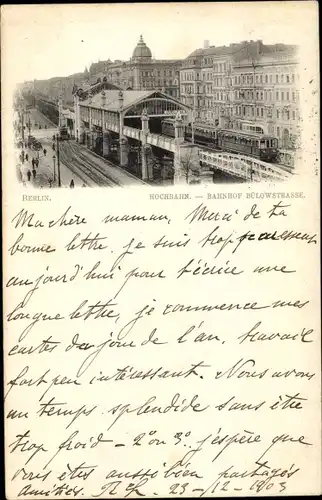 BERLIN.
HOCHBAHN. — BAHNHOF BÜLOWSTRASSE.
Ma chère maman, Merci de ta
bonne lettre, je suis trop paresseux
aujourd'hui pour t'écrire une
longue lettre, je commence mes
cartes du jour de l'an, travail
fort peu intéressant. Nous avons
un temps splendide sans être
trop froid - 2° ou 3°. j'espère que
vous êtes aussi bien partagés
amitiés. 23-12-1903